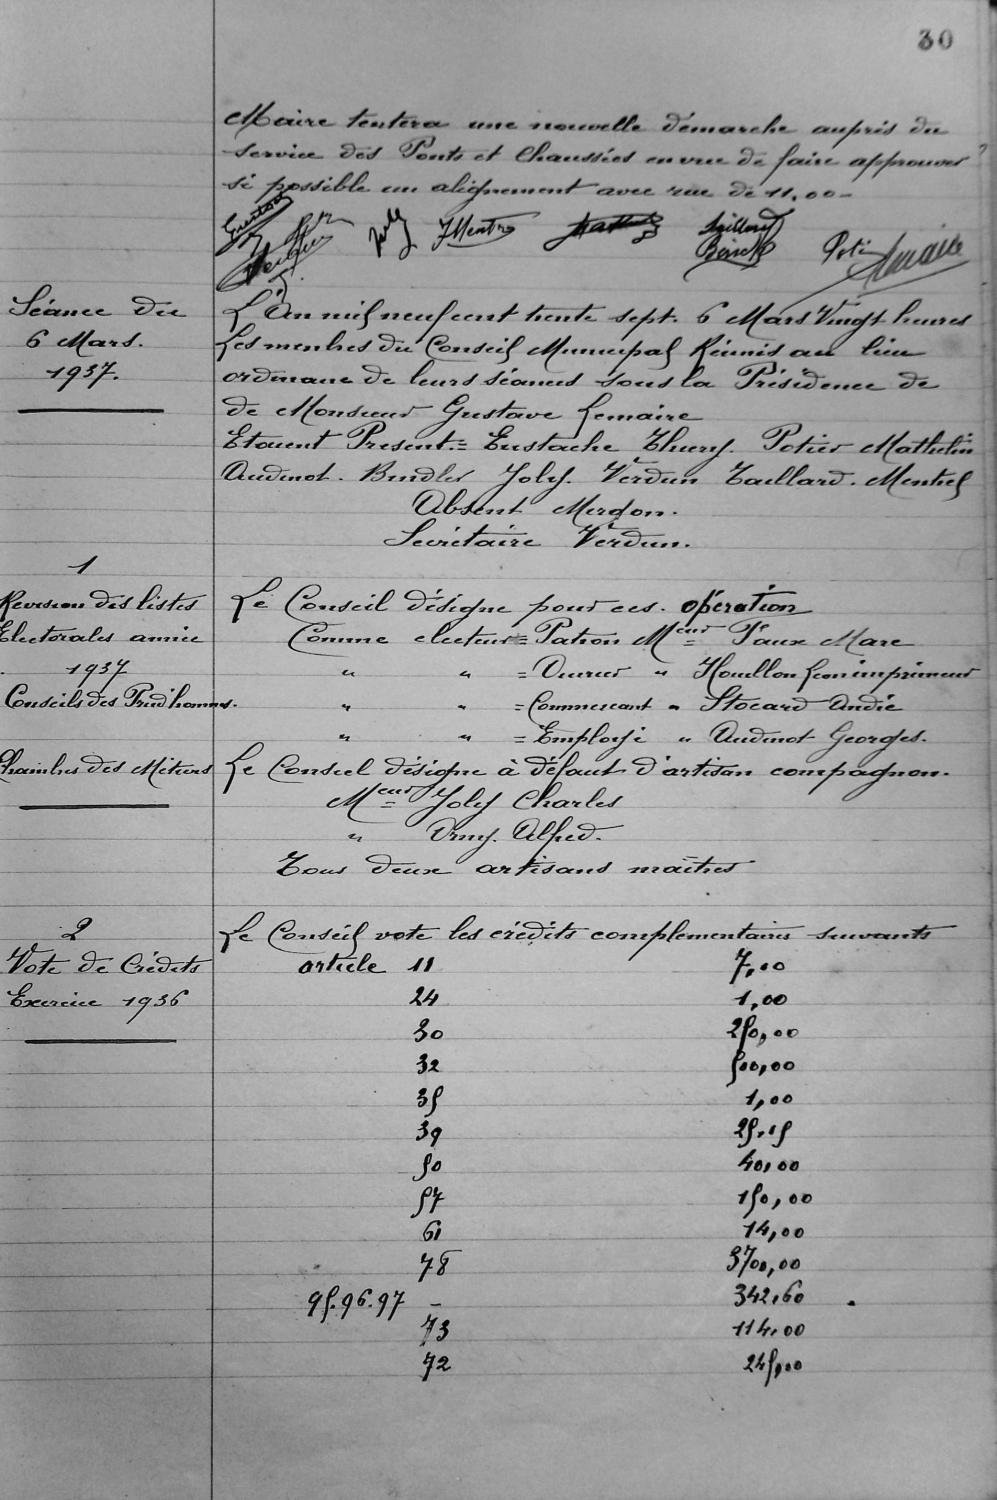 30
Maire tentera une nouvelle démarche auprès du
service des Ponts et Chaussées en vue de faire approuver
si possible un alignement avec rue de 11.00 -
Joly Mentrel Mathelin Taillard Potier Lemaire
Séance du
6 Mars.
1937.
L'An mil neuf cent trente sept. 6 Mars Vingt heures
Les membres du Conseil Municipal Réunis au lieu
ordinaire de leurs séances sous la Présidence de
de Monsieur Gustave Lemaire
Etaient Present.= Eustache Thiery. Potier Mathelin
Audinot. Bindler Joly. Verdun Taillard. Mentrel
Absent Merdon.
Secrétaire Verdun.
1
Revision des listes
Electorales année
1937
Conseils des Prud'hommes.
Le Conseil désigne pour ces. opération
Comme electeur = Patron Meur = Paux Marc
" " = Ouvrier " Houillon Léon imprimeur
" " = Commercant " Stocard André
" " = Employé " Audinot Georges.
Chambres des Métiers
Le Conseil désigne à défaut d'artisan compagnon.
Meur = Joly Charles
" Orny. Alfred.
Tous deux artisans maîtres
2
Vote de Crédits
Exercice 1936
Le Conseil vote les crédits complémentaires suivants
article 11 7,00
24 1,00
30 250,00
32 500,00
35 1,00
39 25,15
50 40,00
57 150,00
61 14,00
78 3700,00
95.96.97 - 342,60
73 114,00
72 245,00